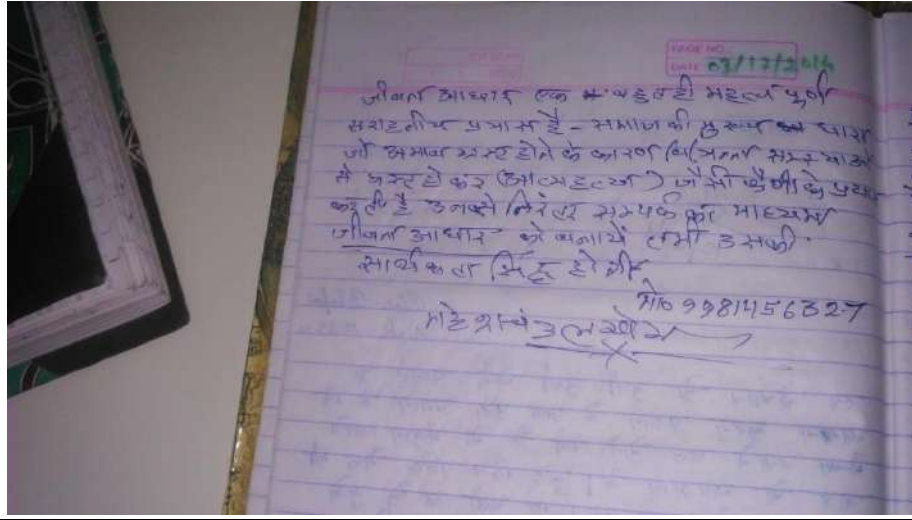 PAGE NO.
DATE 03/12/2014
जीवन आधार एक बहुत ही महत्व पूर्ण
सराहनीय प्रयास है - समाज की मुख्य धारा
जो अभाव ग्रस्त होने के कारण समस्याओं
से ग्रस्त हो कर (आत्महत्या) जैसी के प्रयास
करती है उनसे निरंतर सम्पर्क का माध्यम
जीवन आधार को बनायें तभी उसकी
सार्थकता सिद्ध होगी
मो० 9981456327